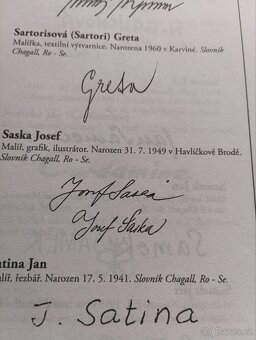 Sartorisová (Sartori) Greta
Malířka, textilní výtvarnice. Narozena 1960 v Karviné. Slovník
Chagall, Ro - Se.
Greta
Saska Josef
Malíř, grafik, ilustrátor. Narozen 31. 7. 1949 v Havlíčkově Brodě.
Slovník Chagall, Ro - Se.
Josef Saska
Josef Saska
atina Jan
alíř, řezbář. Narozen 17. 5. 1941. Slovník Chagall, Ro - Se.
J. Satina